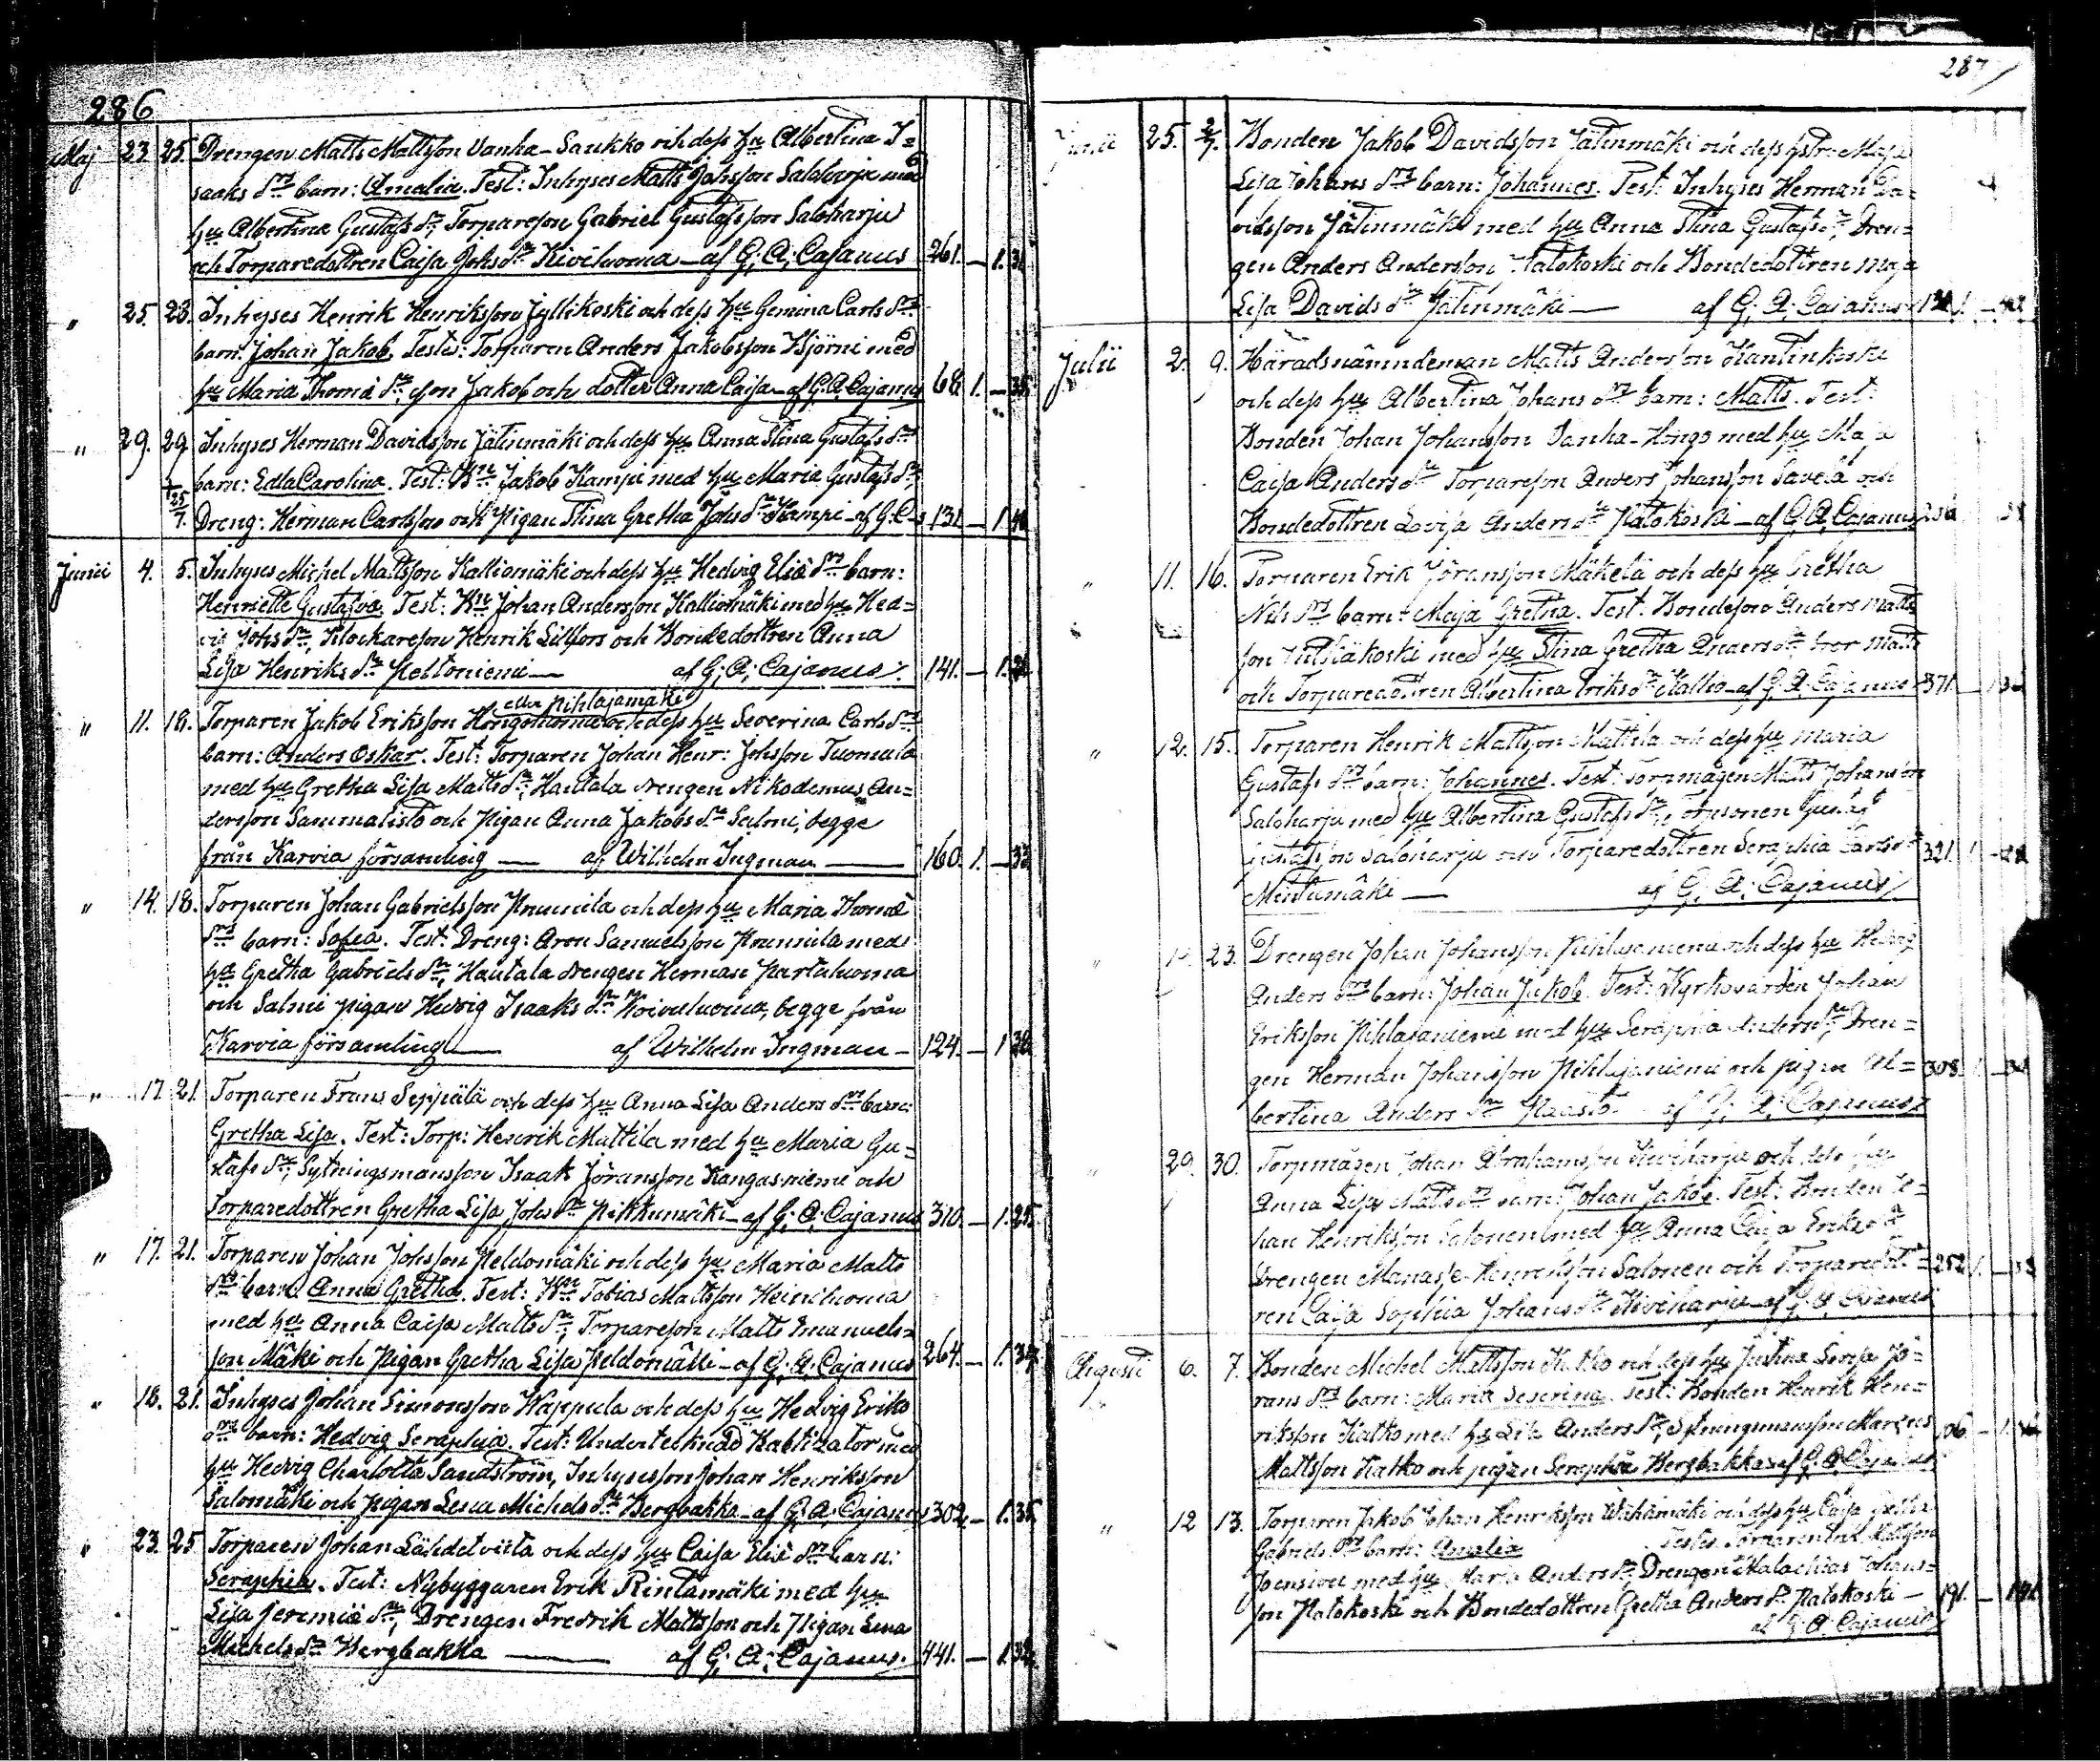 286
Maj 23. 25. Drengen Matts Mattsson Vanha-Saukko och dess hu Albertina I=
saaks drs barn: Amalia. Test: Inhyses Matts Johsson Saloharju med
hu Albertina Gustafs dr Torpareson Gabriel Gustafsson Saloharju
och Torparedottren Caisa Johs dr Kiviluoma - af G. A. Cajanus 261. - 1. 31
" 25. 28. Inhyses Henrik Henriksson Jyllikoski och dess hu Gemina Carls drs
barn: Johan Jakob. Testes: Torparen Anders Jakobsson Björni med
hu Maria Thomæ dr, son Jakob och dotter Anna Caisa - af G. A. Cajanus 68. 1. - 35.
" 29. 29. Inhyses Herman Davidsson Jätinmäki och dess hu Anna Stina Gustafs drs
† 25/7. barn: Edla Carolina. Test: Bn Jakob Kampi med hu Maria Gustafs dr
Dreng: Herman Carlsson och Pigan Stina Gretha Johs dr Kampi - af G. C-s 131 - 1 40
Junii 4. 5. Inhyses Michel Mattsson Kalliomäki och dess hu Hedvig Eliæ drs barn:
Henriette Gustafva. Test: Bn Johan Andersson Kalliomäki med hu Hed=
vig Johs dr, Klockareson Henrik Lillfors och Bondedottren Anna
Lisa Henriks dr Peltoniemi — af G. A. Cajanus. 141. - 1.
eller Pihlajamäki
" 11. 18. Torparen Jakob Eriksson Hongonoma och dess hu Severina Carls drs
barn: Anders Oskar. Test: Torparen Johan Henr: Johsson Tuomula
med hu Gretha Lisa Matts dr, Hautala drengen Nikodemus An=
dersson Sammalisto och Pigan Anna Jakobs dr Salmi, begge
från Karvia församling — af Wilhelm Ingman — 160. 1. - 33.
" 14. 18. Torparen Johan Gabrielsson Krunnila och dess hu Maria Thomæ
drs barn: Sofia. Test: Dreng: Aron Samuelsson Krunnila med
hu Gretha Gabriels dr, Hautala drengen Herman Partaluoma
och Salmi pigan Hedvig Isaaks dr Koivuluoma, begge från
Karvia församling — af Wilhelm Ingman - 124. - 1 38.
" 17. 21. Torparen Frans Seppälä och dess hu Anna Lisa Anders drs barn:
Gretha Lisa. Test: Torp: Henrik Mattila med hu Maria Gu=
stafs dr, Sytningsmansson Isaak Jöransson Kangasniemi och
Torparedottren Gretha Lisa Johs dr Pikkumäki - af G. A. Cajanus 310. - 1. 25.
" 17. 21. Torparen Johan Johsson Peldomäki och dess hu Maria Matts
drs barn: Anna Gretha. Test: Bn Tobias Mattsson Heiniluoma
med hu Anna Caisa Matts dr, Torpareson Matts Emanuels=
son Mäki och Pigan Gretha Lisa Peldomäki - af G. A. Cajanus 264. - 1. 34.
" 18. 21. Inhyses Johan Simonsson Wappula och dess hu Hedvig Eriks
drs barn: Hedvig Seraphia. Test: Undertecknad Baptizator med
hu Hedvig Charlotta Sandström, Inhysesson Johan Henriksson
Salomäki och Pigan Lena Michels dr Bergbakka - af G. A. Cajanus 302. - 1. 35.
" 23. 25 Torparen Johan Lähdetviita och dess hu Caisa Eliæ drs barn:
Seraphia. Test: Nybyggaren Erik Rintamäki med hu
Lisa Jeremiæ dr, Drengen Fredrik Mattsson och Pigan Lena
Michels dr Bergbakka — af G. A. Cajanus. 441. - 1. 32.
287
Junii 25. 2/7. Bonden Jakob Davidsson Jätinmäki och dess hstr. Maja
Lisa Johans drs barn: Johannes. Test: Inhyses Herman Da=
vidsson Jätinmäki med hu Anna Stina Gustafs dr, Dren=
gen Anders Andersson Katokoski och Bondedottren Maja
Lisa Davids dr Jätinmäki — af G. A. Cajanus
Julii 2. 9. Häradsnämndeman Matts Andersson Kantinkoski
och dess hu Albertina Johans drs barn: Matts. Test:
Bonden Johan Johansson Vanha-Hongo med hu Maja
Caisa Anders dr Torpareson Anders Johansson Savela och
Bondedottren Lovisa Anders dr Katokoski - af G. A. Cajanus
" 11. 16. Torparen Erik Jöransson Mäkelä och dess hu Gretha
Nils drs barn: Maja Gretha. Test: Bondeson Anders Matts
son med hu Stina Gretha Anders dr bror Matts
och Torparedottren Albertina Eriks dr Katko - af G. A. Cajanus 371
" 12. 15. Torparen Henrik Mattsson Mattila och dess hu Maria
Gustafs drs barn: Johannes. Test: Torpmågen Matts Johansson
Saloharju med hu Albertina Gustafs dr, Torpsonen Gustaf
Gustafsson Saloharju och Torparedottren Seraphia Carls dr 321.
Mintumäki — af G. A. Cajanus
23. Drengen Johan Johansson Pihlajaniemi och dess hu Hedvig
Anders drs barn: Johan Jakob. Test: Kyrkovärden Johan
Eriksson Pihlajaniemi med hu Seraphia Anders dr, Dren=
gen Herman Johansson Pihlajaniemi och pigan Al= 308.
bertina Anders dr Haasto - af G. A. Cajanus
" 29. 30. Torpmågen Johan Abrahamsson Kiviharju och dess hu
Anna Lisa Matts drs barn: Johan Jakob. Test: Bonden Jo=
han Henriksson Salonen med hu Anna Caisa Eriks dr
Drengen Manasse Henriksson Salonen och Torparedott= 252
ren Caisa Sophia Johans dr Kiviharju - af G. A. Cajanus
Augusti 6. 7. Bonden Michel Mattsson Katko och dess hu Justina Lovisa Jö=
rans drs barn: Maria Severina. Test: Bonden Henrik Hen=
riksson Katko med hu Lisa Anders dr, Sytningsmansson Marcus
Mattsson Katko och pigan Seraphia Bergbakka - af G. A. Cajanus
" 12 13. Torparen Jakob Johan Henriksson Wähämäki och dess hu Caisa Gretha
Gabriels drs barn: Amalia Testes. Torparen Mattsson
med hu Maria Anders dr, Drengen Malachias Johans=
son Katokoski och Bondedottren Gretha Anders dr Katokoski - 191.
af G. A. Cajanus